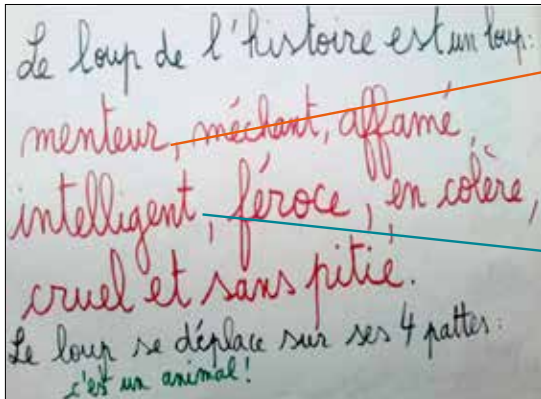 Le loup de l'histoire est un loup:
menteur, méchant, affamé,
intelligent, féroce, en colère,
cruel et sans pitié.
Le loup se déplace sur ses 4 pattes:
c'est un animal!